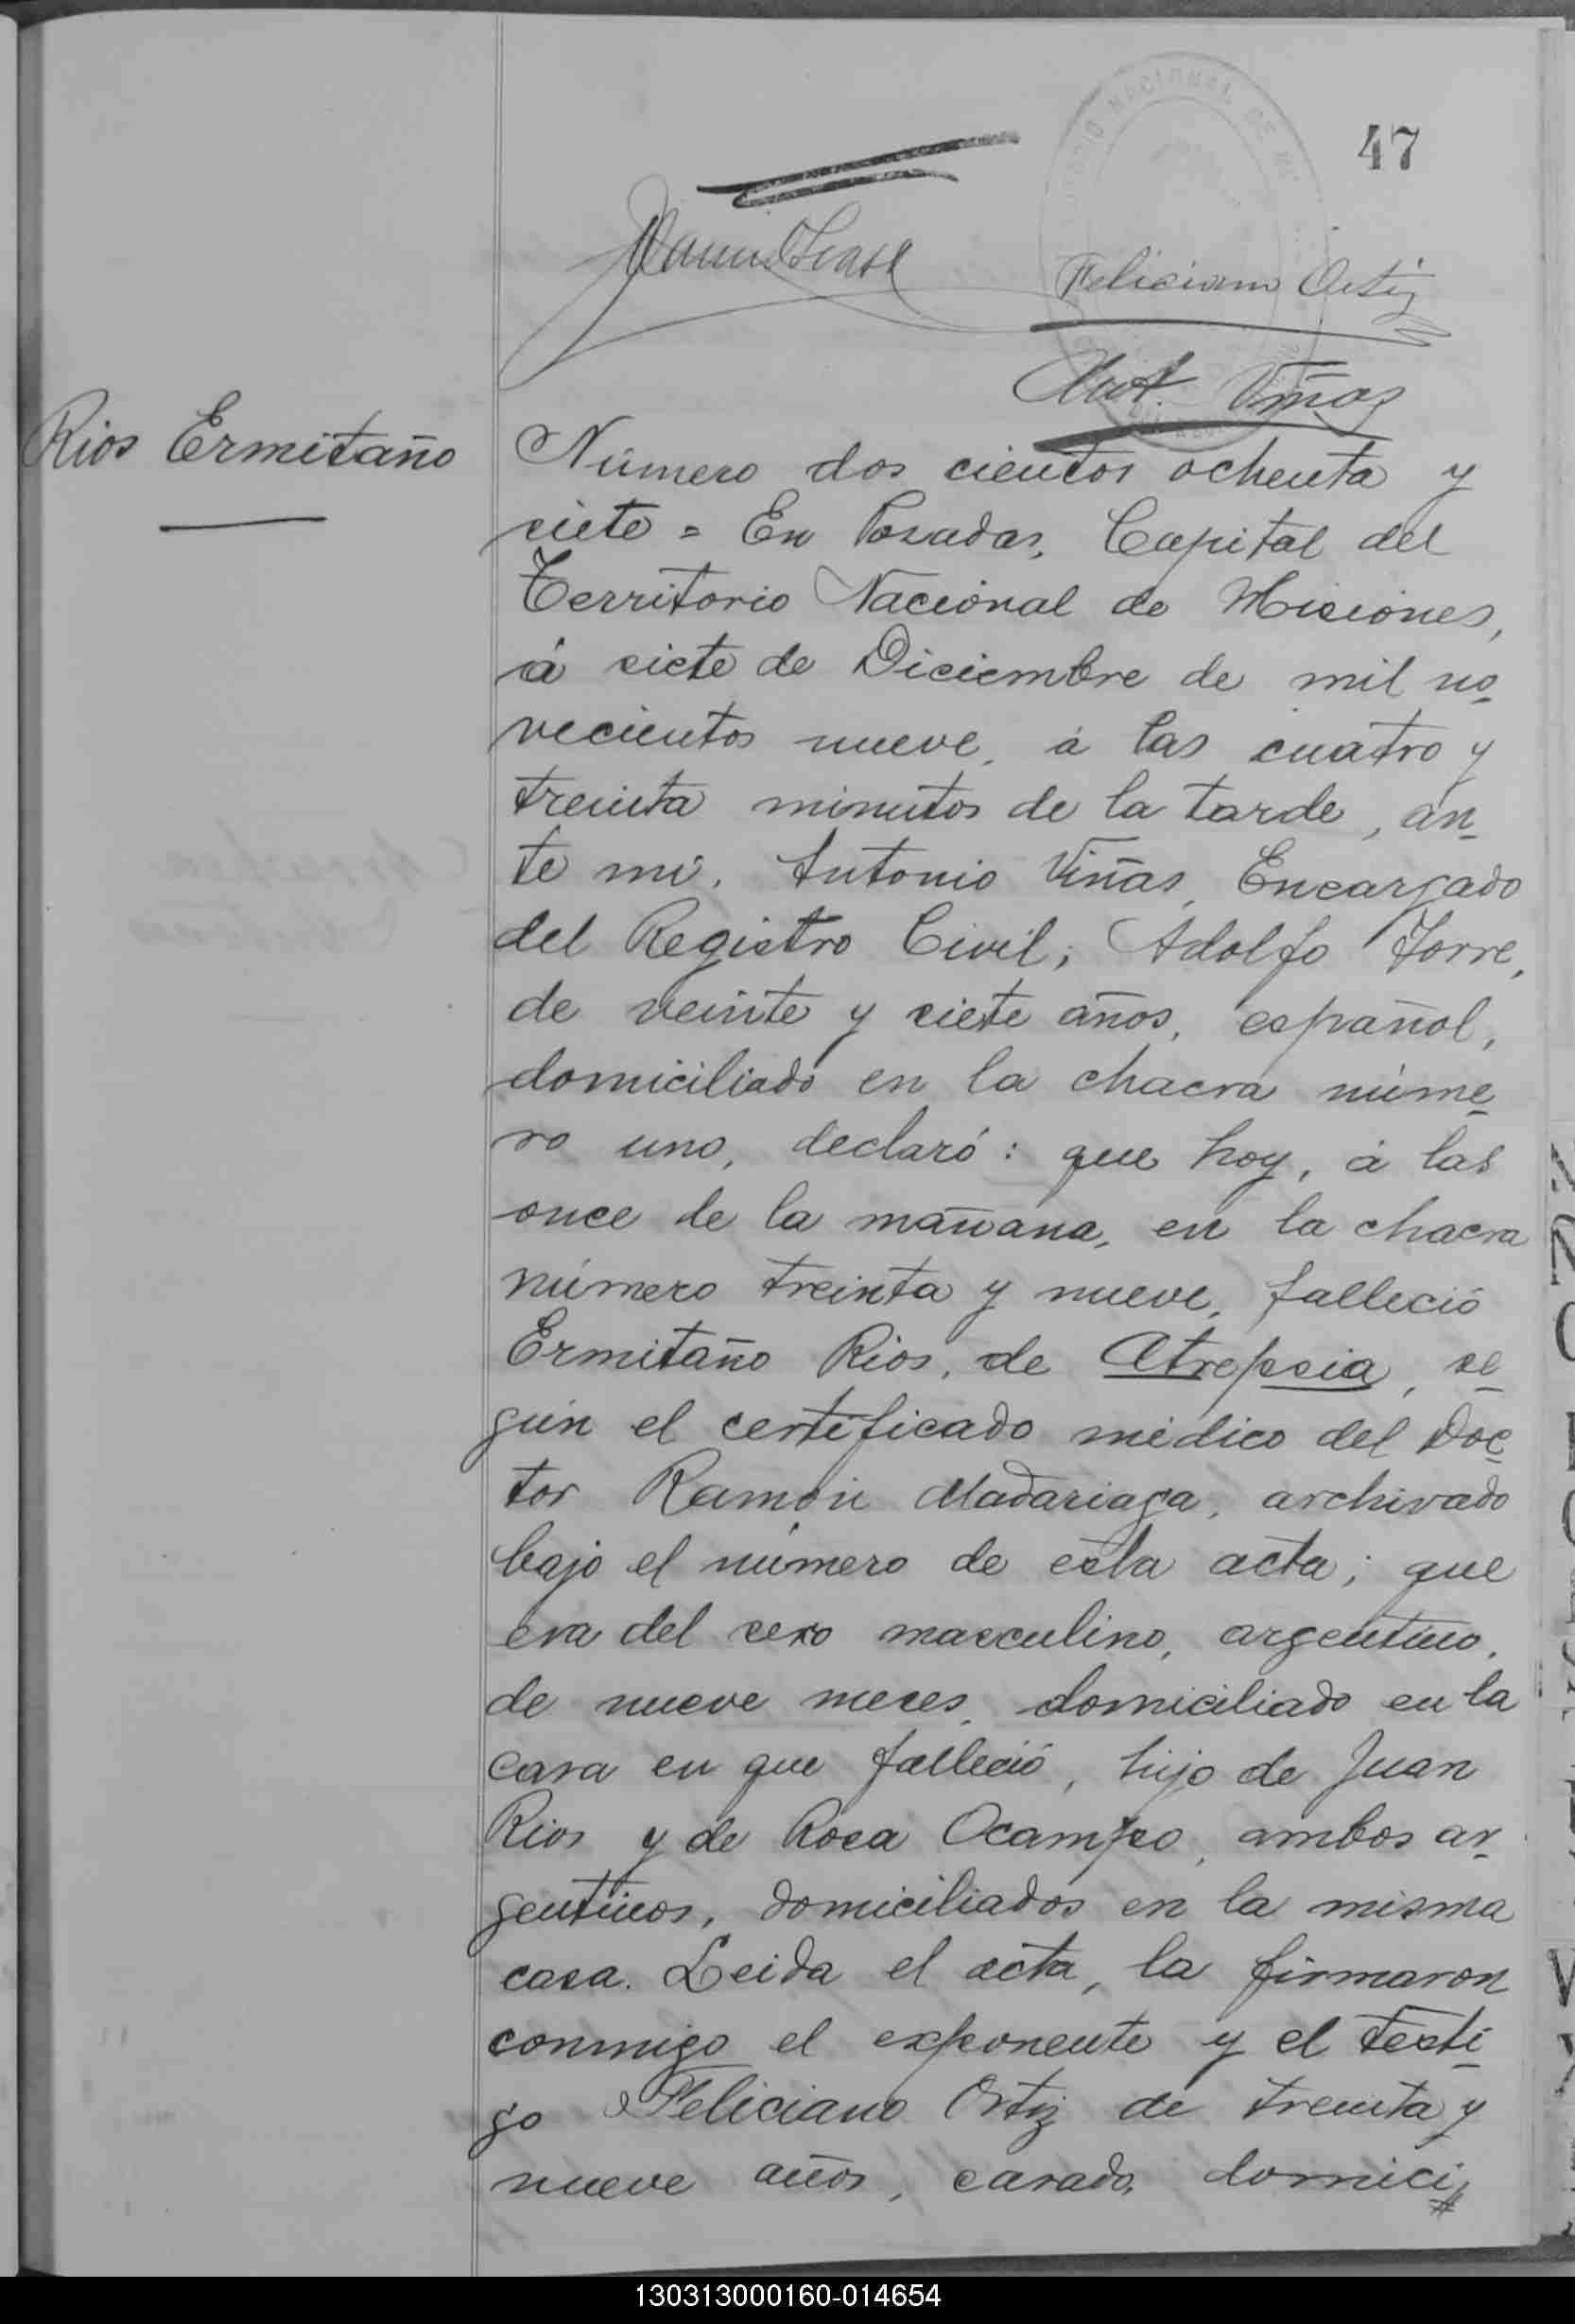 47
Feliciano Ortiz
Ant. Viñas
Rios Ermitaño
Número dos cientos ochenta y
siete = En Posadas, Capital del
Territorio Nacional de Misiones,
á siete de Diciembre de mil no-
vecientos nueve, á las cuatro y
treinta minutos de la tarde, an-
te mi, Antonio Viñas, Encargado
del Registro Civil; Adolfo Torre,
de veinte y siete años, español,
domiciliado en la chacra núme-
ro uno, declaró: que hoy, á las
once de la mañana, en la chacra
número treinta y nueve, falleció
Ermitaño Rios, de Atrepsia, se-
gún el certificado médico del Doc-
tor Ramón Madariaga, archivado
bajo el número de esta acta; que
era del sexo masculino, argentino,
de nueve meses, domiciliado en la
casa en que falleció, hijo de Juan
Rios y de Rosa Ocampo, ambos ar-
gentinos, domiciliados en la misma
casa. Leida el acta, la firmaron
conmigo el exponente y el testi-
go Feliciano Ortiz de treinta y
nueve años, casado, domici-
130313000160-014654